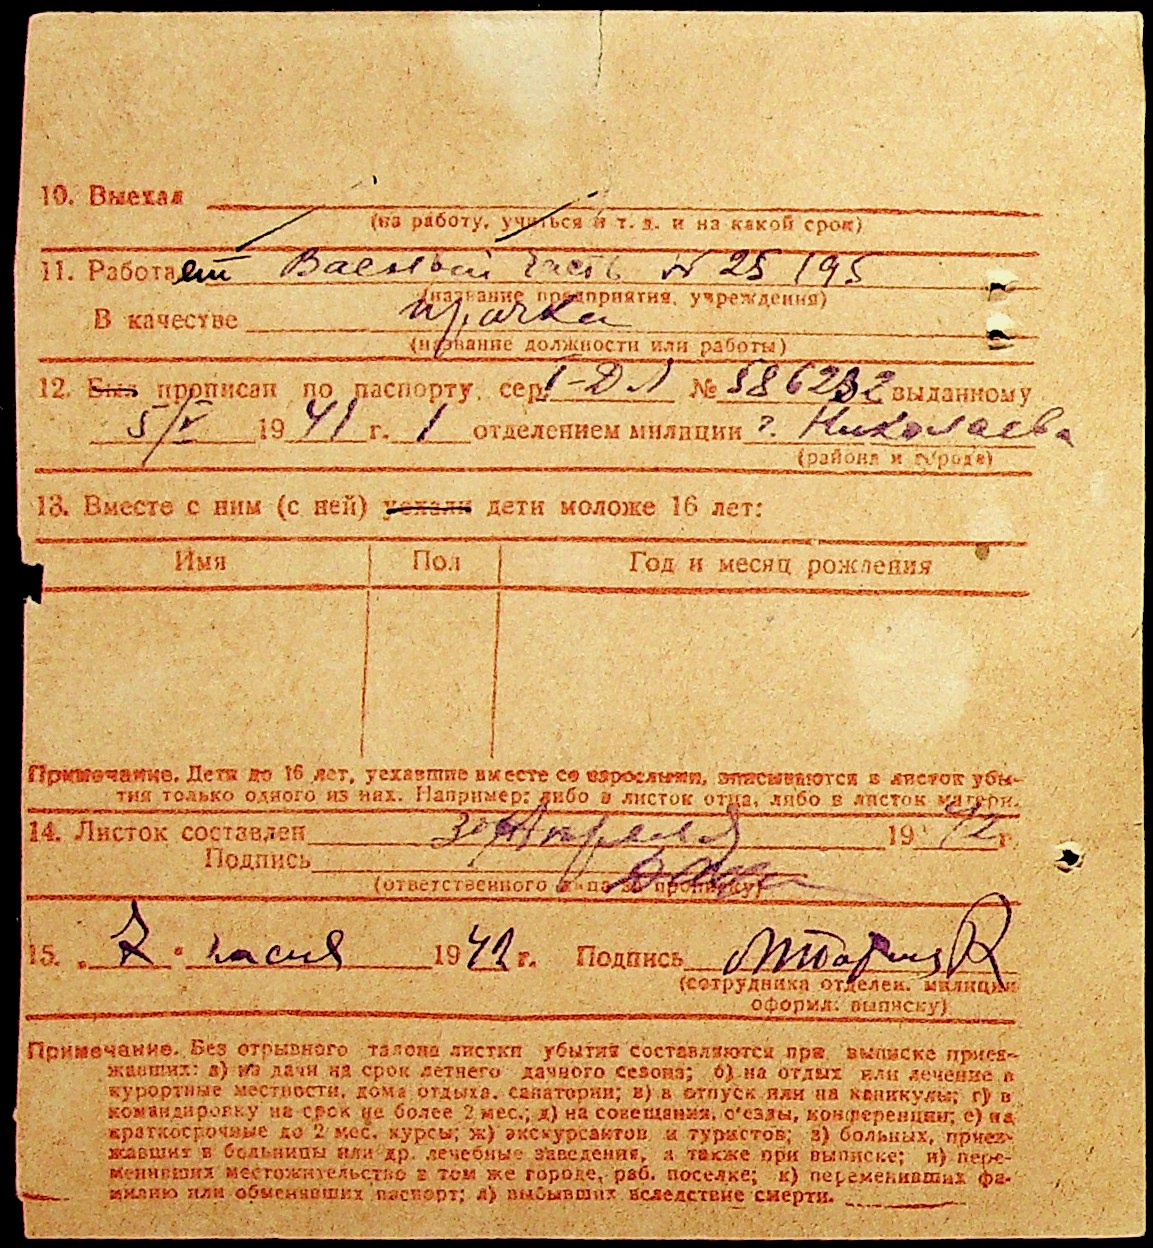 10. Выехал
(на работу, учиться и т. д. и на какой срок)
11. Работает Военный часть № 25195
(название предприятия, учреждения)
В качестве прачки
(название должности или работы)
12. Был прописан по паспорту сер. I-ДЛ № 586232 выданному
5/V 1941 г. 1 отделением милиции г. Николаева
(района и города)
13. Вместе с ним (с ней) уехали дети моложе 16 лет:
Имя Пол Год и месяц рождения
Примечание. Дети до 16 лет, уехавшие вместе со взрослыми, вписываются в листок убы-
тия только одного из них. Например: либо в листок отца, либо в листок матери.
14. Листок составлен 30 Апреля 1942 г.
Подпись
(ответственного лица за прописку)
15. „ 7 " 1942 г. Подпись
(сотрудника отделен. милиции
оформл. выписку)
Примечание. Без отрывного талона листки убытия составляются при выписке приез-
жавших: а) на дачи на срок летнего дачного сезона; б) на отдых или лечение в
курортные местности, дома отдыха, санатории; в) в отпуск или на каникулы; г) в
командировку на срок не более 2 мес.; д) на совещания, с'езды, конференции; е) на
краткосрочные до 2 мес. курсы; ж) экскурсантов и туристов; з) больных, приез-
жавших в больницы или др. лечебные заведения, а также при выписке; и) пере-
менивших местожительство в том же городе, раб. поселке; к) переменивших фа-
милию или обменявших паспорт; л) выбывших вследствие смерти.